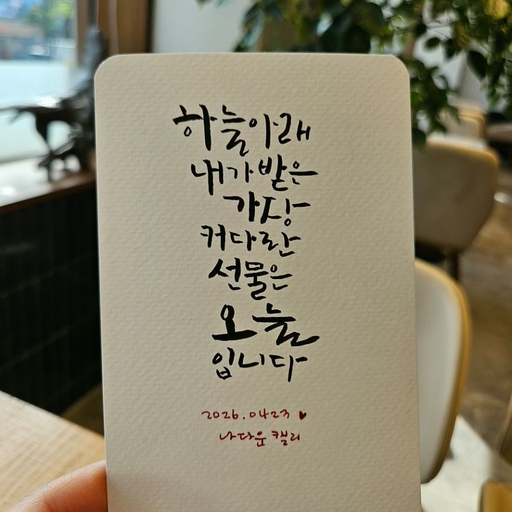 하늘아래
내가받은
가장
커다란
선물은
오늘
입니다
2026.0423 ♥
나다운 캘리